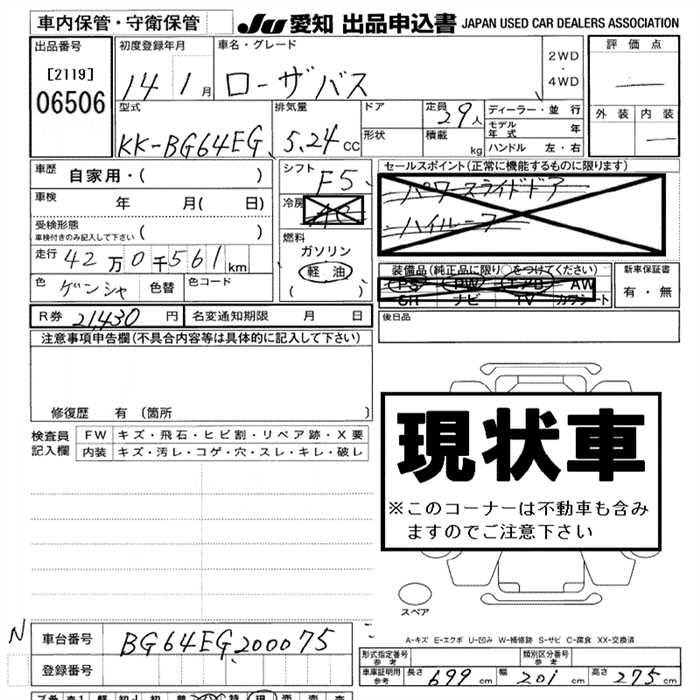 車内保管・守衛保管 JU 愛知 出品申込書 JAPAN USED CAR DEALERS ASSOCIATION
出品番号 初度登録年月 車名・グレード 評価点
[2119] 14 1月 ローザバス 2WD・4WD
06506 型式 排気量 ドア 定員 29人 ディーラー・並行 外装 内装
KK-BG64EG 5.24cc 形状 積載 kg モデル年式 年
ハンドル 左・右
車歴 自家用・( ) シフト F5 セールスポイント(正常に機能するものに限ります)
車検 年 月( 日) 冷房 パワースライドドア
受検形態 ハイルーフ
車検付きのみ記入して下さい ( ) 燃料
走行 42万0千561km ガソリン
軽油 装備品(純正品に限り○をつけてください) 新車保証書
色 ゲンシャ 色替 色コード ( ) PS PW エアB AW 有・無
SR ナビ TV カワシート
R券 21,430円 名変通知期限 月 日 後日品
注意事項申告欄(不具合内容等は具体的に記入して下さい)
修復歴 有 (箇所 )
検査員 FW キズ・飛石・ヒビ割・リペア跡・X要
記入欄 内装 キズ・汚レ・コゲ・穴・スレ・キレ・破レ
現状車
※このコーナーは不動車も含み
ますのでご注意下さい
スペア
N 車台番号 BG64EG200075 A-キズ E-エクボ U-凹み W-補修跡 S-サビ C-腐食 XX-交換済
登録番号 形式指定番号 参考 類別区分番号 参考
車庫証明用 参考 長さ 699cm 幅 201cm 高さ 275cm